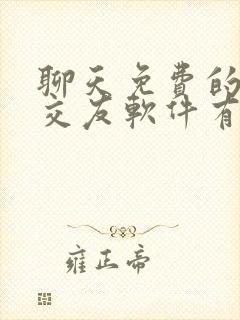 聊天免費的
交友軟件有
雍正帝